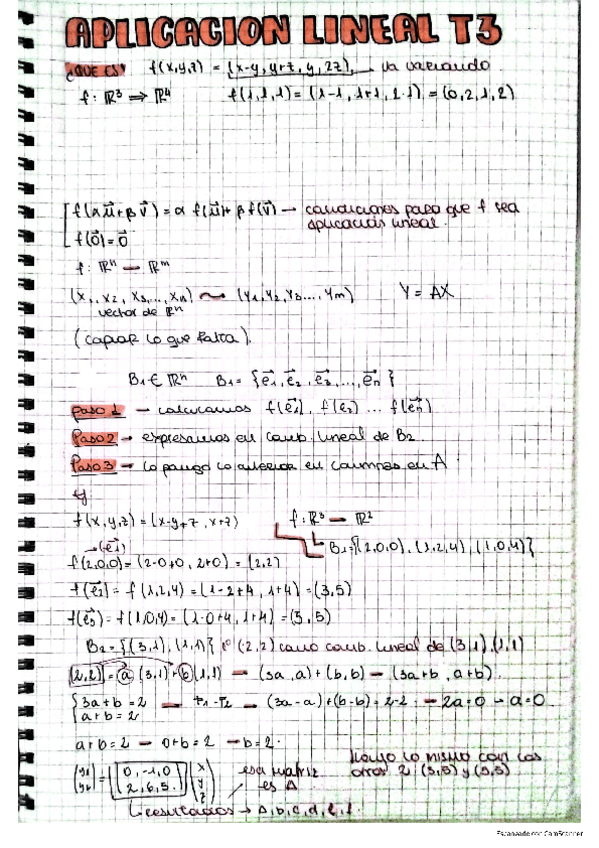 APLICACION LINEAL T3
¿QUE ES? f(x,y,z) = (x-y, y+z, y, 2z), → va variando
f: ℝ³ ⟹ ℝ⁴ f(1,1,1) = (1-1, 1+1, 2·1) = (0,2,1,2)
f(α u⃗ + β v⃗) = α f(u⃗) + β f(v⃗) → condiciones para que f sea
aplicación lineal.
f(0⃗) = 0⃗
f: ℝⁿ — ℝᵐ
(x₁, x₂, x₃, ..., xₙ) ⤳ (y₁, y₂, y₃ ..., yₘ) Y = AX
vector de ℝⁿ
(copiar lo que falta).
B₁ ∈ ℝⁿ B₁ = {e⃗₁, e⃗₂, e⃗₃, ..., e⃗ₙ}
paso 1 → calculamos f(e⃗₁), f(e₂) ... f(e⃗ₙ)
Paso 2 → expresamos en comb. lineal de B₂
Paso 3 → lo pongo lo anterior en columnas en A
ej
f(x,y,z) = (x-y+z, x+z) f: ℝ³ → ℝ²
→(e⃗₁) B₁ = {(2,0,0), (1,2,4), (1,0,4)}
f(2,0,0) = (2-0+0, 2+0) = (2,2)
f(e⃗₂) = f(1,2,4) = (1-2+4, 1+4) = (3,5)
f(e⃗₃) = f(1,0,4) = (1-0+4, 1+4) = (5,5)
B₂ = {(3,1), (1,1)} (2,2) como comb. lineal de (3,1), (1,1)
(2,2) = a (3,1) + b (1,1) — (3a, a) + (b, b) — (3a+b, a+b)
3a + b = 2 — F₁-F₂ — (3a-a) + (b-b) = 2-2 — 2a = 0 - a = 0
a + b = 2
a + b = 2 — 0+b = 2 — b = 2. Hago lo mismo con los
otros 2 (3,5) y (5,5)
(y₁ y₂) = (0, -1, 0 2, 6, 5.) (x y z) esa matriz
es A
resultados → a, b, c, d, e, f.
Escaneado con CamScanner